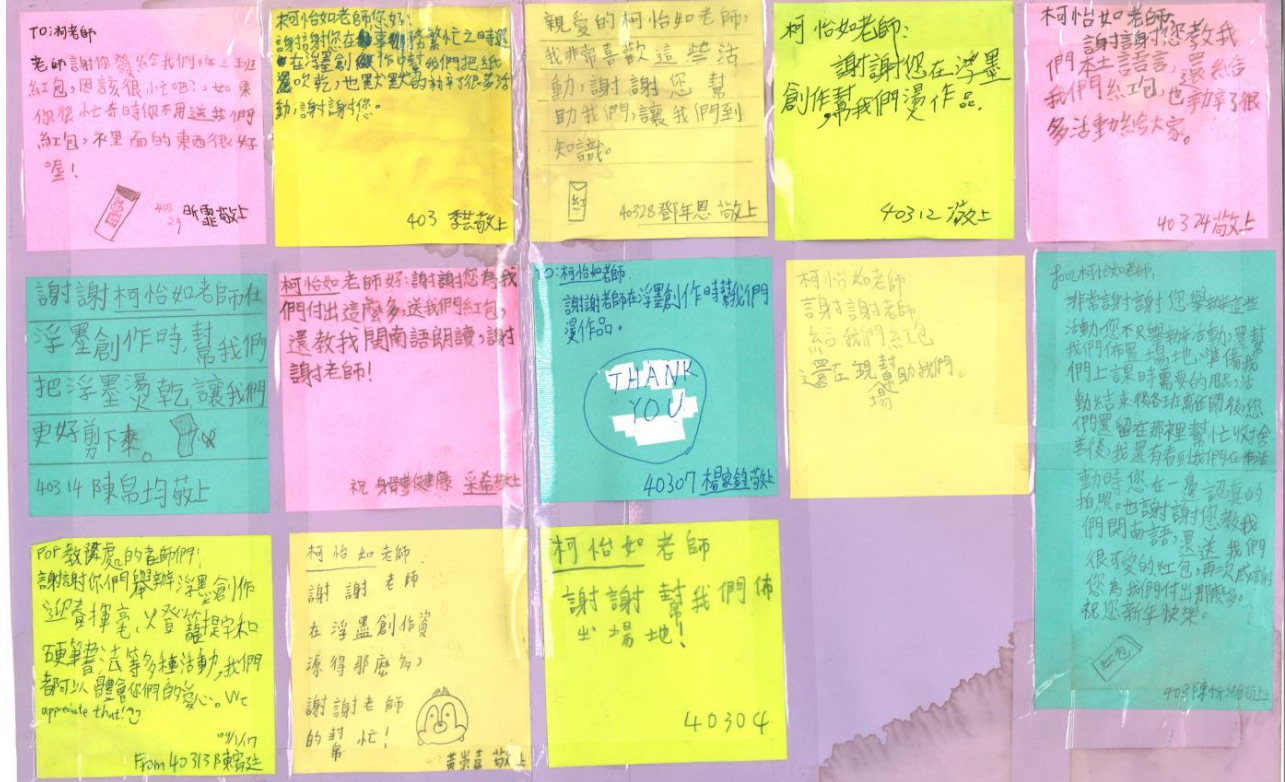 TO:柯老師
老師謝你發給我們年三班
紅包,因該很忙吧?,如果
你很忙奇時你不用送我們
紅包,不里面的東西很好
喔!
403
29
昕霏敬上
柯怡如老師您好:
謝謝您在事務繁忙之時還
在浮墨創作中幫我們把紙
吹乾,也默默的辦了很多活
動,謝謝您。
403 季芸敬上
親愛的柯怡如老師,
我非常喜歡這些活
動,謝謝您幫
助我們,讓我們到
知識。
紅
40328鄧年恩敬上
柯怡如老師:
謝謝您在浮墨
創作幫我們燙作品。
40312敬上
柯怡如老師
謝謝您教我
們本土語言,還給
我們紅包,也辦了很
多活動給大家。
40324敬上
謝謝柯怡如老師在
浮墨創作時,幫我們
把浮墨燙乾讓我們
更好剪下來。
40314陳帛均敬上
柯怡如老師好:謝謝您為我
們付出這麼多,送我們紅包,
還教我閩南語朗讀,謝謝
老師!
祝 身體健康 采希敬上
TO:柯怡如老師
謝謝老師在浮墨創作時幫我們
燙作品。
THANK
YOU
40307楊敬上
柯怡如老師
謝謝老師
給我們紅包
還在現場幫助我們。
柯怡如老師,
非常謝謝您舉辦這些
活動您不只舉辦活動,還幫
我們佈置場地、準備我
們上課時需要的用品,活
動結束後各班離開後,您
們還留在那裡幫忙收拾
善後,我還有看到我們在作活
動時您在一邊認真的
拍照。也謝謝您教我
們閩南語,還送我們
很可愛的紅包,再次感謝
您為我們付出那麼多,
祝您新年快樂。
紅包
403陳敬上
For 教務處的老師們:
謝謝你們舉辦浮墨創作
迎春揮毫、燈籠提字和
硬筆書法等多種活動,我們
都可以體會你們的愛心。We
appreciate that!
109/1/17
From 40313陳廷
柯怡如老師
謝謝老師
在浮墨創作資
源得那麼多,
謝謝老師
的幫忙!
黃崇喜敬上
柯怡如老師
謝謝幫我們佈
出場地!
40304